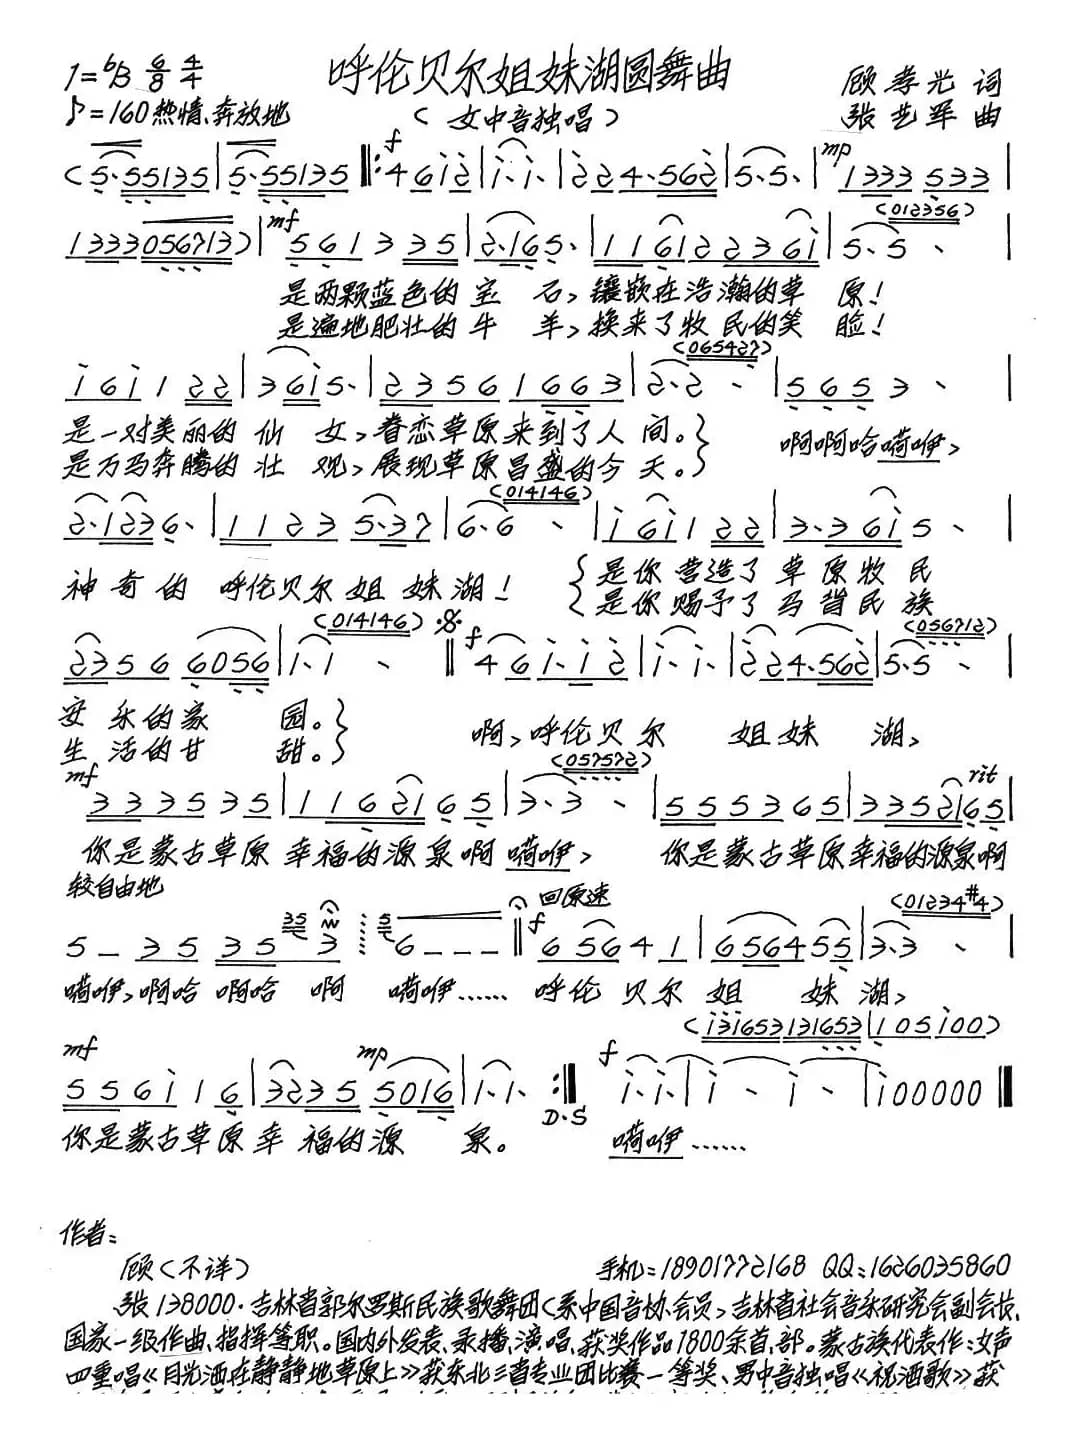 呼伦贝尔姐妹湖圆舞曲
1=♭B 6/8 4/4
顾孝光 词
♪=160热情、奔放地
(女中音独唱)
张艺军 曲
f
mp
(5·55135|5·55135‖:46i2|i·i·|224·562|5·5·|1333 533|
mf
(012356)
1333056713)|561 335|2·165·|11612236i|5·5·|
是两颗蓝色的宝 石,镶嵌在浩瀚的草 原!
是遍地肥壮的牛 羊,换来了牧民的笑 脸!
(065427)
i6i122|36i5·|23561663|2·2·|5653·|
是一对美丽的仙 女,眷恋草原来到了人 间。}
啊啊哈嗬咿,
是万马奔腾的壮 观,展现草原昌盛的今 天。}
(014146)
2·1236·|1123 5·37|6·6·|i6i122|3·36i5·|
神奇的 呼伦贝尔姐妹湖!
{是你营造了草原牧民
{是你赐予了马背民族
(014146)
f
(056712)
2356 6056|1·1·‖46i·i2|i·i·|224·562|5·5·|
安乐的家 园。}
生活的甘 甜。}
啊,呼伦贝尔 姐妹 湖,
mf
(057572)
rit
333535|1162165|3·3·|555365|3352165|
你是蒙古草原幸福的源泉啊 嗬咿, 你是蒙古草原幸福的源泉啊
较自由地
回原速
f
(01234#4)
5－35 35 3 6－－－‖65641|656455|3·3·|
嗬咿,啊哈 啊哈 啊 嗬咿…… 呼伦 贝尔 姐 妹 湖,
(i3i653131653|105i00)
mf
mp
f
556i16|3235 5016|1·1·:‖i·i·|i·i·|i00000‖
D.S
你是蒙古草原幸 福的源 泉。 嗬咿……
作者:
顾(不详)
手机:18901772168 QQ:1626035860
张 138000·吉林省郭尔罗斯民族歌舞团(系中国音协会员)吉林省社会音乐研究会副会长、
国家一级作曲、指挥等职。国内外发表、录播、演唱、获奖作品1800余首、部。蒙古族代表作:女声
四重唱《月光洒在静静地草原上》获东北三省专业团比赛一等奖、男中音独唱《祝酒歌》获